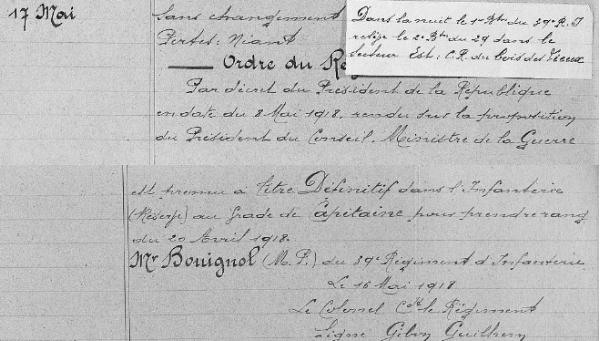 17 Mai
Sans changement
Pertes: Néant
Dans la nuit le 1er Btn du 39e R.I
relève le 2e Btn du 29 dans le
secteur Est: C.R. du bois des
Ordre du Rég
Par décret du Président de la République
en date du 8 Mai 1918, rendu sur la proposition
du Président du Conseil, Ministre de la Guerre
est promu à titre Définitif dans l'Infanterie
(Réserve) au grade de Capitaine pour prendre rang
du 20 Avril 1918.
Mr Bouignol (M.P.) du 39e Régiment d'Infanterie
Le 16 Mai 1918
Le Colonel Cdt le Régiment
Signé Gibon Guilhem